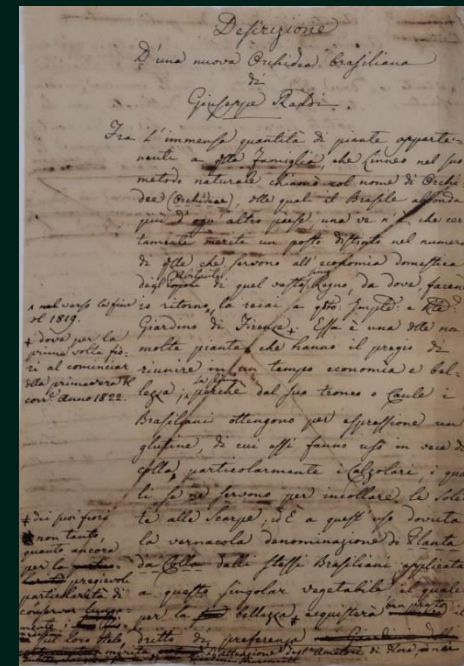 Descrizione
D'una nuova Orchidea brasiliana
di
Giuseppe Raddi.
Fra l'immensa quantità di piante apparte-
nenti a detta famiglia, che Linneo nel suo
metodo naturale chiamò col nome di Orchi-
dee (Orchideae), delle quali il Brasile abbonda
più d'ogni altro paese, una ve n'è che cer-
tamente merita un posto distinto nel numero
di quelle che servono all'economia domestica
degli popoli di quel vasto Regno, da dove, facen-
io ritorno, la recai a questo
Giardino di Firenze. Essa è una delle non
molte piante, che hanno il pregio di
riunire in un tempo economia e bel-
lezza, perchè dal suo tronco o Caule i
Brasiliani ottengono per espressione un
glutine, di cui essi fanno uso in vece di
colla, particolarmente i Calzolari, i qua
li se ne servono per incollare le Sole
te alle Scarpe; ed È a quest'uso dovuta
la vernacola denominazione di Pianta
da Colla dalli stessi Brasiliani applicata
a questo singolar vegetabile, il quale
per la bellezza, acquisterà
dritto di preferenza
nel verso la fine
del 1819.
+ dove per la
prima volta fio-
rì al cominciar
della primavera del
corr.e anno 1822.
# dei suoi fiori
non tanto,
quanto ancora
per la
pregievole
particolarità di
conservar
sul loro stelo,